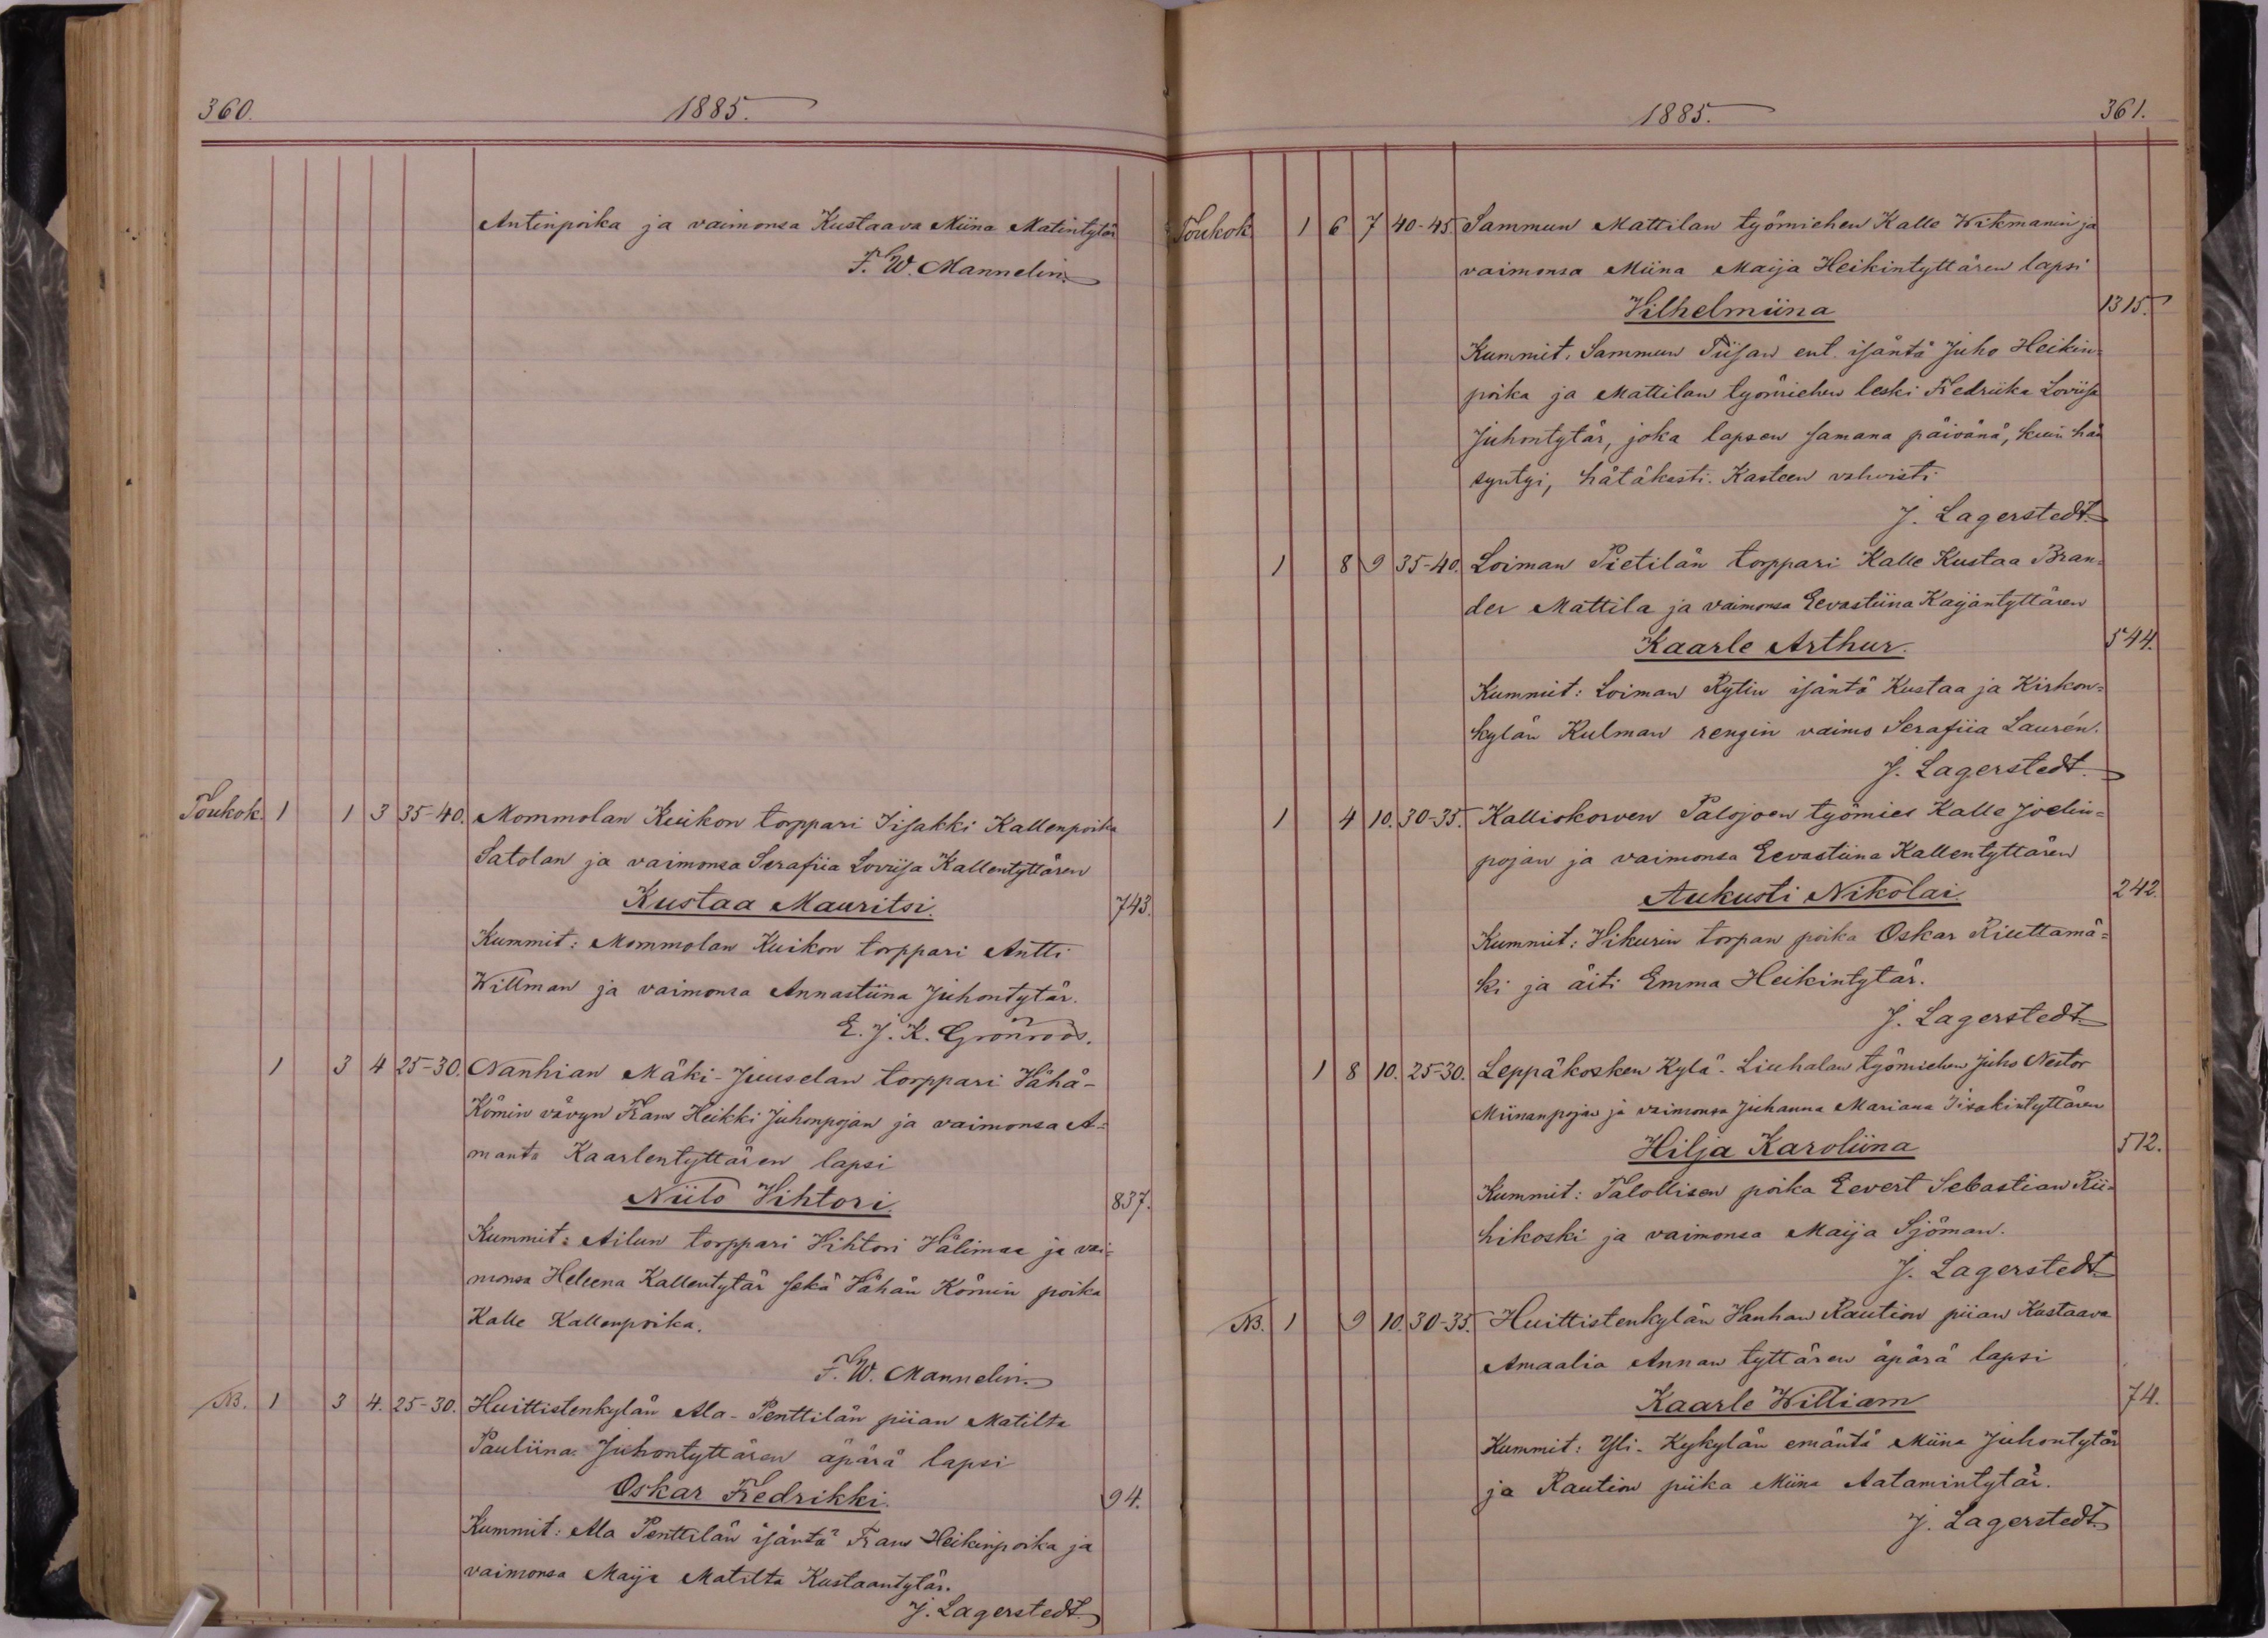 360.
1885.
Antinpoika ja vaimonsa Kustaava Miina Matintytär
F. W. Mannelin.
Toukok. 1 1 3 35-40. Mommolan Kuikon torppari Iisakki Kallenpoika
Satolan ja vaimonsa Serafiia Loviisa Kallentyttären
Kustaa Mauritsi. 743.
Kummit: Mommolan Kuikon torppari Antti
Willman ja vaimonsa Annastiina Juhontytär.
E. J. K. Grönroos.
1 3 4 25-30. Nanhian Mäki-Juuselan torppari Vähä-
Kömin vävyn Frans Heikki Juhonpojan ja vaimonsa A-
manta Kaarlentyttären lapsi
Niilo Vihtori. 837.
Kummit: Ailun torppari Vihtori Välimaa ja vai-
monsa Heleena Kallentytär sekä Vähän Kömin poika
Kalle Kallenpoika.
F. W. Mannelin.
NB. 1 3 4. 25-30. Huittistenkylän Ala-Penttilän piian Matilta
Pauliina Juhontyttären äpärä lapsi
Oskar Fredrikki. 94.
Kummit: Ala Penttilän isäntä Frans Heikinpoika ja
vaimonsa Maija Matilta Kustaantytär.
J. Lagerstedt
1885.
361.
Toukok. 1 6 7 40-45. Sammun Mattilan työmiehen Kalle Wikmanin ja
vaimonsa Miina Maija Heikintyttären lapsi
Vilhelmiina 1315.
Kummit. Sammun Tiisan ent. isäntä Juho Heikin-
poika ja Mattilan työmiehen leski Fredriika Loviisa
Juhontytär, joka lapsen samana päivänä, kuin hän
syntyi, hätäkasti. Kasteen vahvisti
J. Lagerstedt.
1 8 9 35-40. Loiman Pietilän torppari Kalle Kustaa Bran-
der Mattila ja vaimonsa Eevastiina Kaijantyttären
Kaarle Arthur. 544.
Kummit: Loiman Rytin isäntä Kustaa ja Kirkon-
kylän Kulman rengin vaimo Serafiia Laurén.
J. Lagerstedt.
1 4 10. 30-35. Kalliokorven Palojoen työmies Kalle Joelin-
pojan ja vaimonsa Eevastiina Kallentyttären
Aukusti Nikolai. 242.
Kummit: Vikurin torpan poika Oskar Riuttamä-
ki ja äiti Emma Heikintytär.
J. Lagerstedt.
1 8 10. 25-30. Leppäkosken Kylä-Liuhalan työmiehen Juho Nestor
Miinanpojan ja vaimonsa Juhanna Mariana Iisakintyttären
Hilja Karoliina 512.
Kummit: Talollisen poika Eevert Sebastian Rii-
hikoski ja vaimonsa Maija Sjöman.
J. Lagerstedt
NB. 1 9 10. 30-35. Huittistenkylän Vanhan Raution piian Kustaava
Amaalia Annan tyttären äpärä lapsi
Kaarle William 74.
Kummit: Yli-Kykylän emäntä Miina Juhontytär
ja Raution piika Miina Aatamintytär.
J. Lagerstedt.